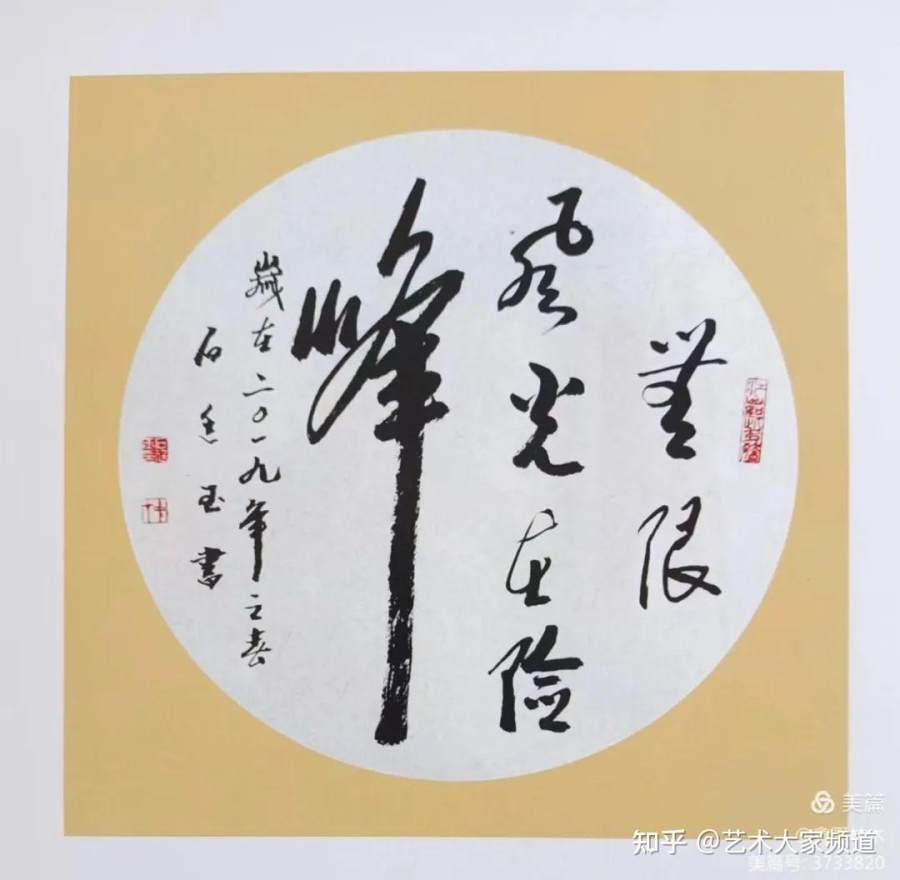 無限
風光在险
峰
歲在二〇一九年之春
石玉書
美篇
知乎 @艺术大家频道
美篇号: 3733820